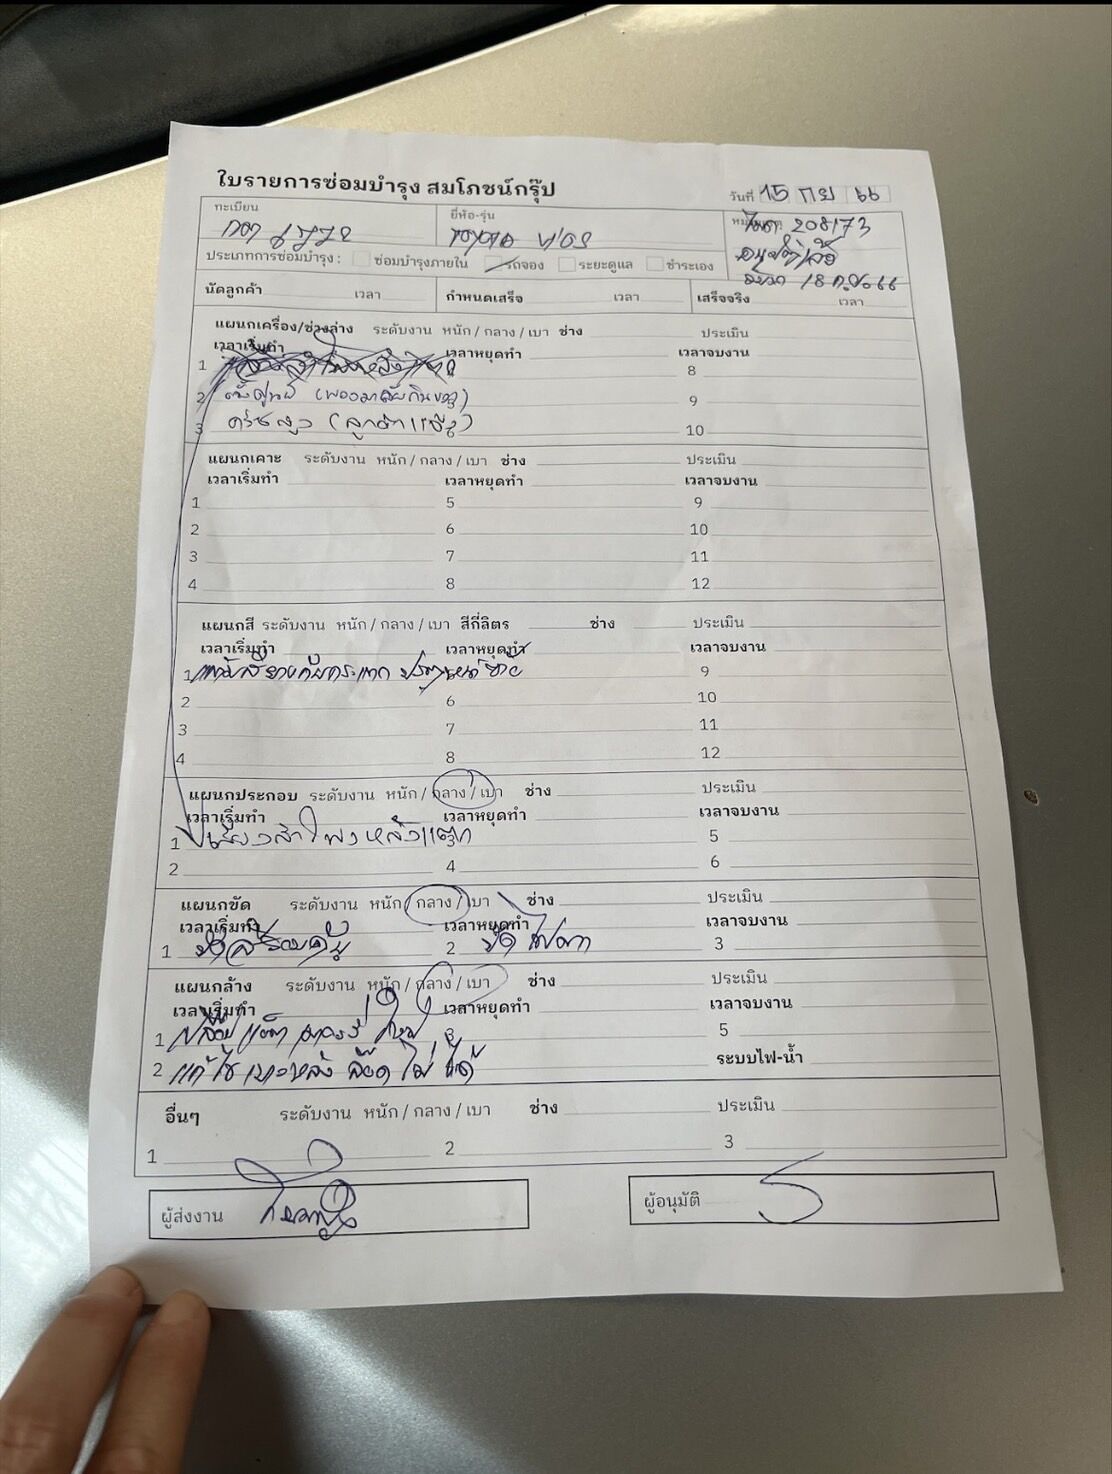 ใบรายการซ่อมบำรุง สมโภชน์กรุ๊ป
วันที่ 15 กย 66
ทะเบียน
ยี่ห้อ-รุ่น
TOYOTA VIOS
208173
ประเภทการซ่อมบำรุง : ซ่อมบำรุงภายใน รถจอง ระยะดูแล ชำระเอง
นัดลูกค้า เวลา กำหนดเสร็จ เวลา เสร็จจริง เวลา
แผนกเครื่อง/ช่วงล่าง ระดับงาน หนัก / กลาง / เบา ช่าง ประเมิน
เวลาเริ่มทำ เวลาหยุดทำ เวลาจบงาน
1 8
2 ตั้งศูนย์ (พวงมาลัยกินขวา) 9
3 10
แผนกเคาะ ระดับงาน หนัก / กลาง / เบา ช่าง ประเมิน
เวลาเริ่มทำ เวลาหยุดทำ เวลาจบงาน
1 5 9
2 6 10
3 7 11
4 8 12
แผนกสี ระดับงาน หนัก / กลาง / เบา สีกี่ลิตร ช่าง ประเมิน
เวลาเริ่มทำ เวลาหยุดทำ เวลาจบงาน
1 9
2 6 10
3 7 11
4 8 12
แผนกประกอบ ระดับงาน หนัก / กลาง / เบา ช่าง ประเมิน
เวลาเริ่มทำ เวลาหยุดทำ เวลาจบงาน
1 เสียงลำโพงหลังแตก 5
2 4 6
แผนกขัด ระดับงาน หนัก / กลาง / เบา ช่าง ประเมิน
เวลาเริ่มทำ เวลาหยุดทำ เวลาจบงาน
1 ขัดสีรอบคัน 2 ขัดไฟตา 3
แผนกล้าง ระดับงาน หนัก / กลาง / เบา ช่าง ประเมิน
เวลาเริ่มทำ เวลาหยุดทำ เวลาจบงาน
1 5
2 แก้ไขเบาะหลัง ล็อคไม่ได้ ระบบไฟ-น้ำ
อื่นๆ ระดับงาน หนัก / กลาง / เบา ช่าง ประเมิน
1 2 3
ผู้ส่งงาน ผู้อนุมัติ